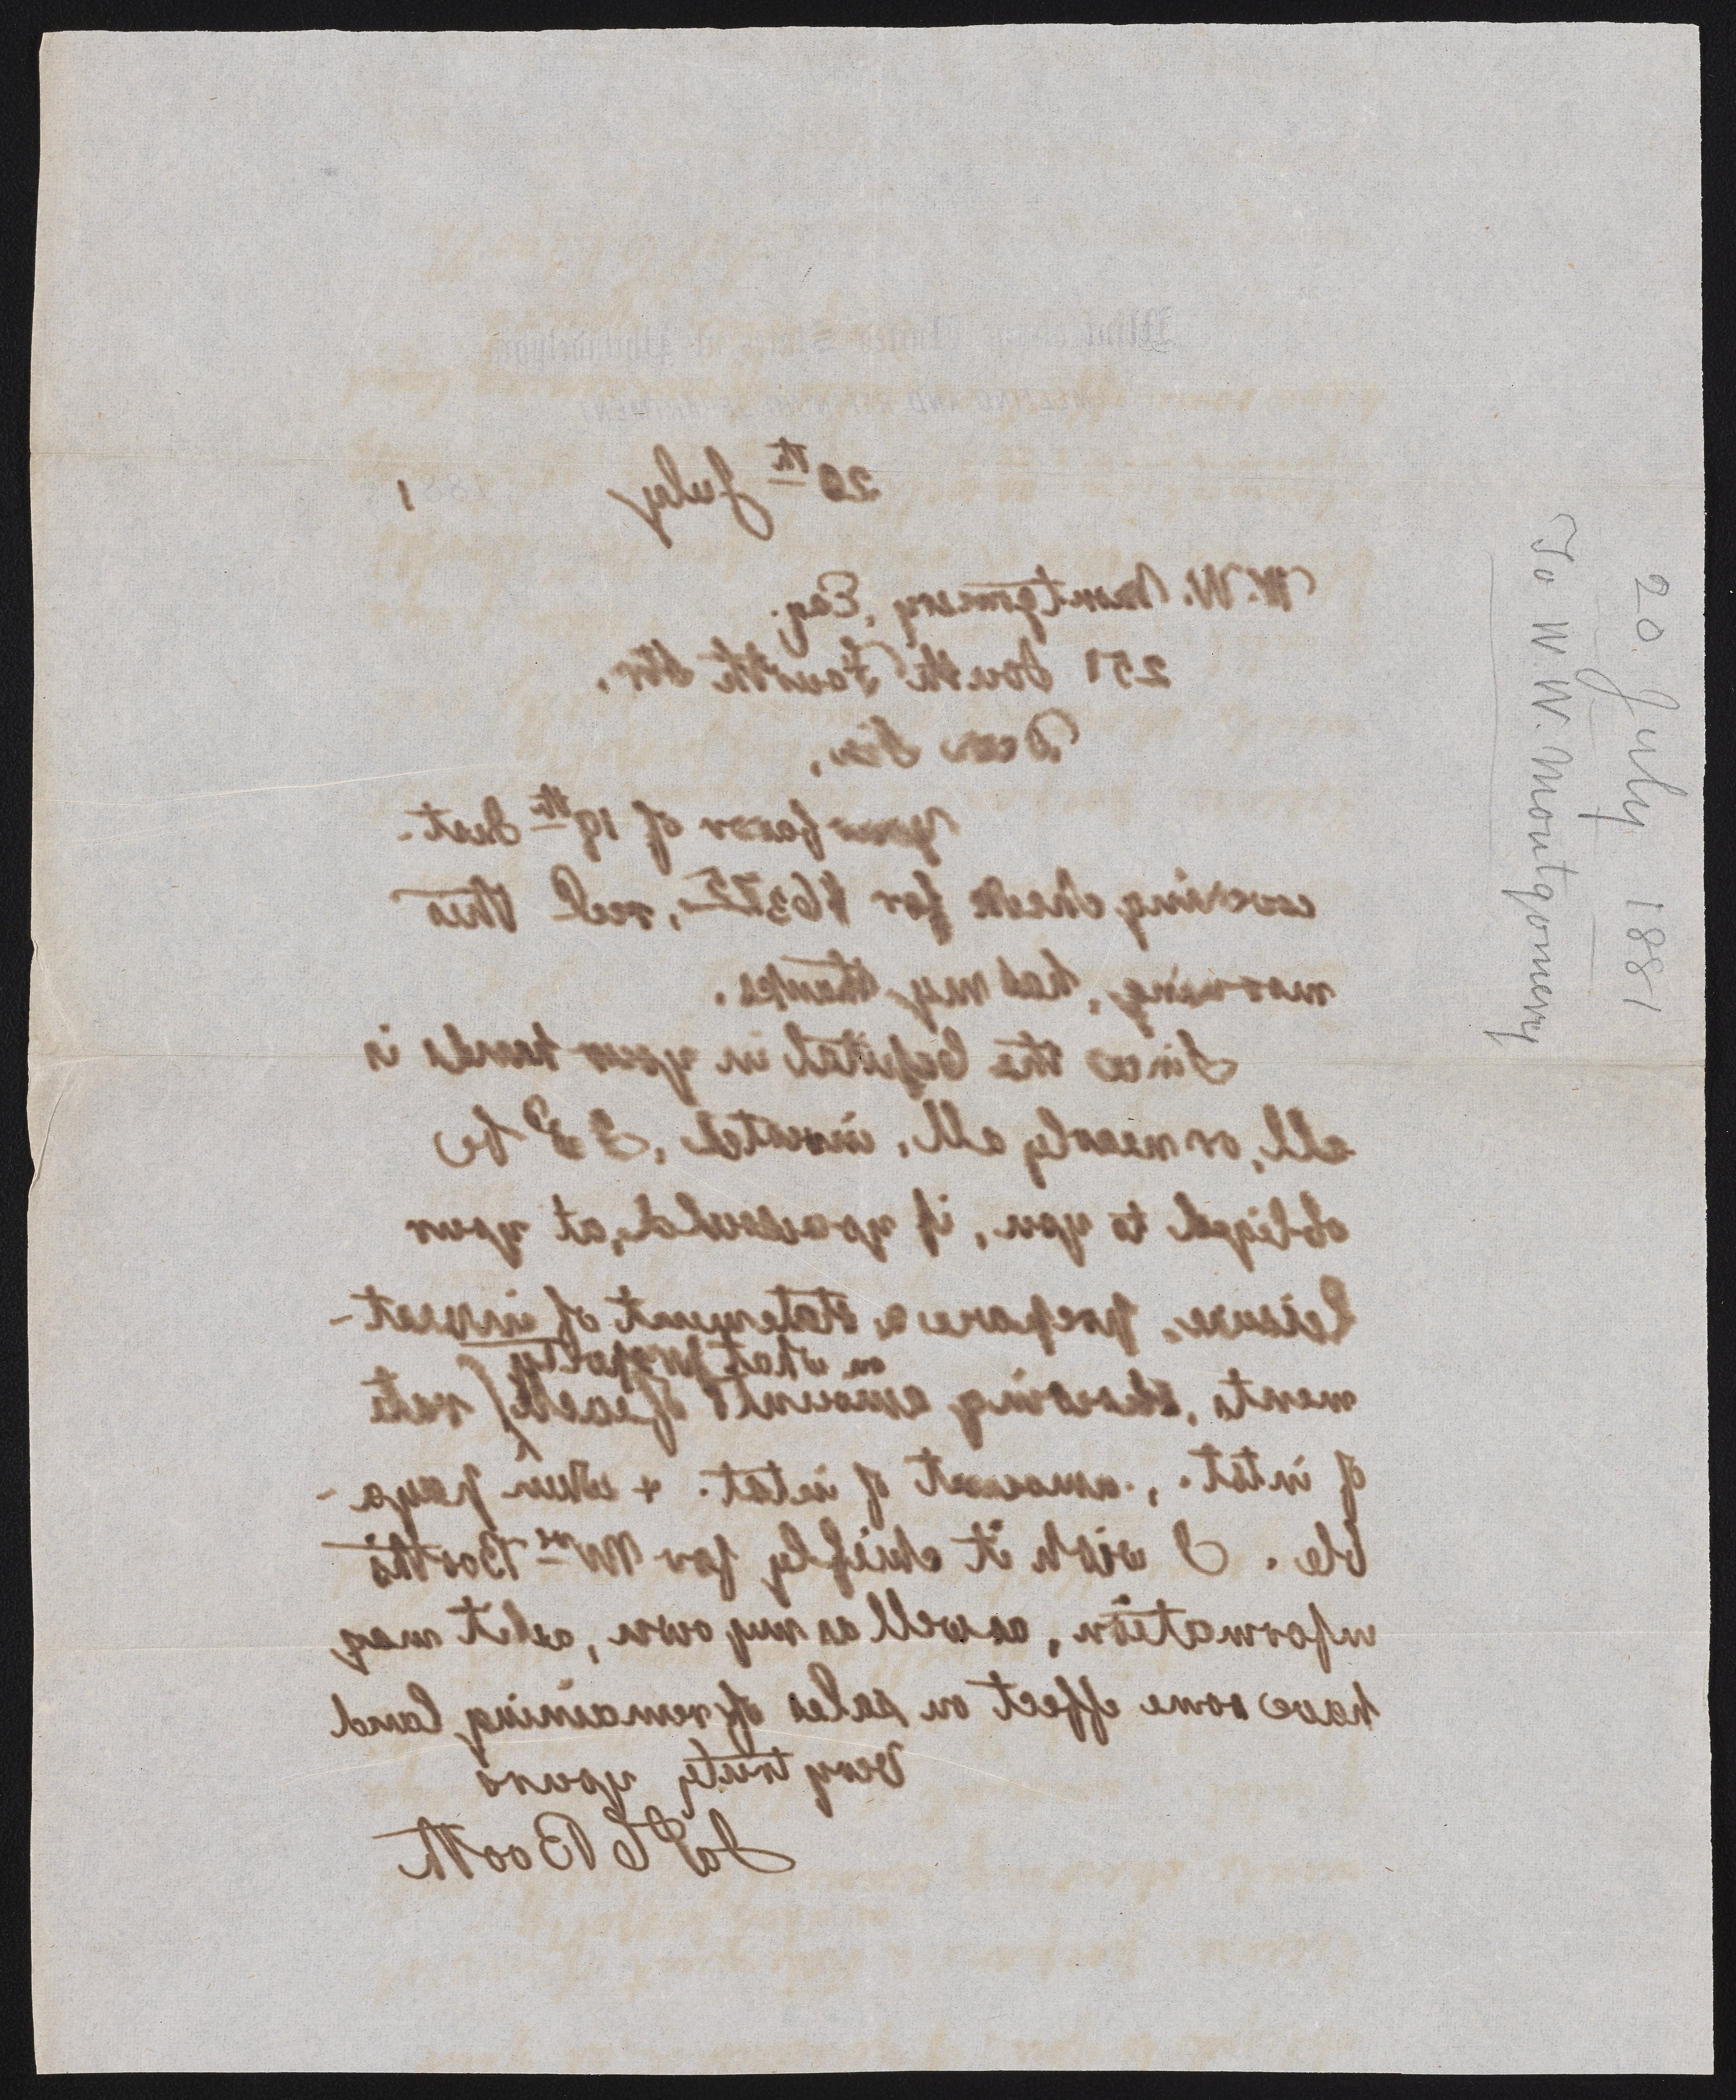 Mint of the United States at Philadelphia
MELTING AND REFINING DEPARTMENT
20th July 1881
W. W. Montgomery, Esq.
251 South Fourth Str.
Dear Sir,
Your favor of 19th Inst.
covering check for $63 75, recd this
morning, has my thanks.
Since the Capital in your hands is
all, or nearly all, invested, I'd be
obliged to you, if you would, at your
leisure, prepare a statement of invest-
on what property
ments, showing amounts of each, rate
of intst., amount of intst. + when paya-
ble. I wish it chiefly for Mrs Booth's
information, as well as my own, as it may
have some effect on sales of remaining land
Very truly yours
Jas C Booth
20 July 1881
To W. W. Montgomery